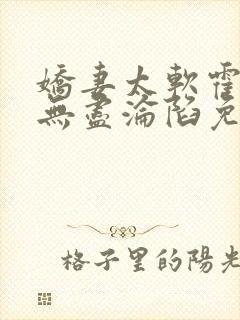 嬌妻太軟霍
無盡淪陷免
格子里的陽光